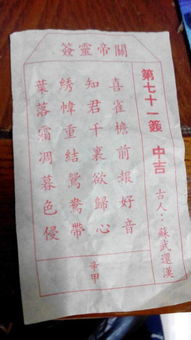 關帝靈簽
第七十一簽 中吉
古人：蘇武還漢
喜雀檐前報好音
知君千裏欲歸心
綉幃重結鴛鴦帶
葉落霜凋暮色侵
辛甲